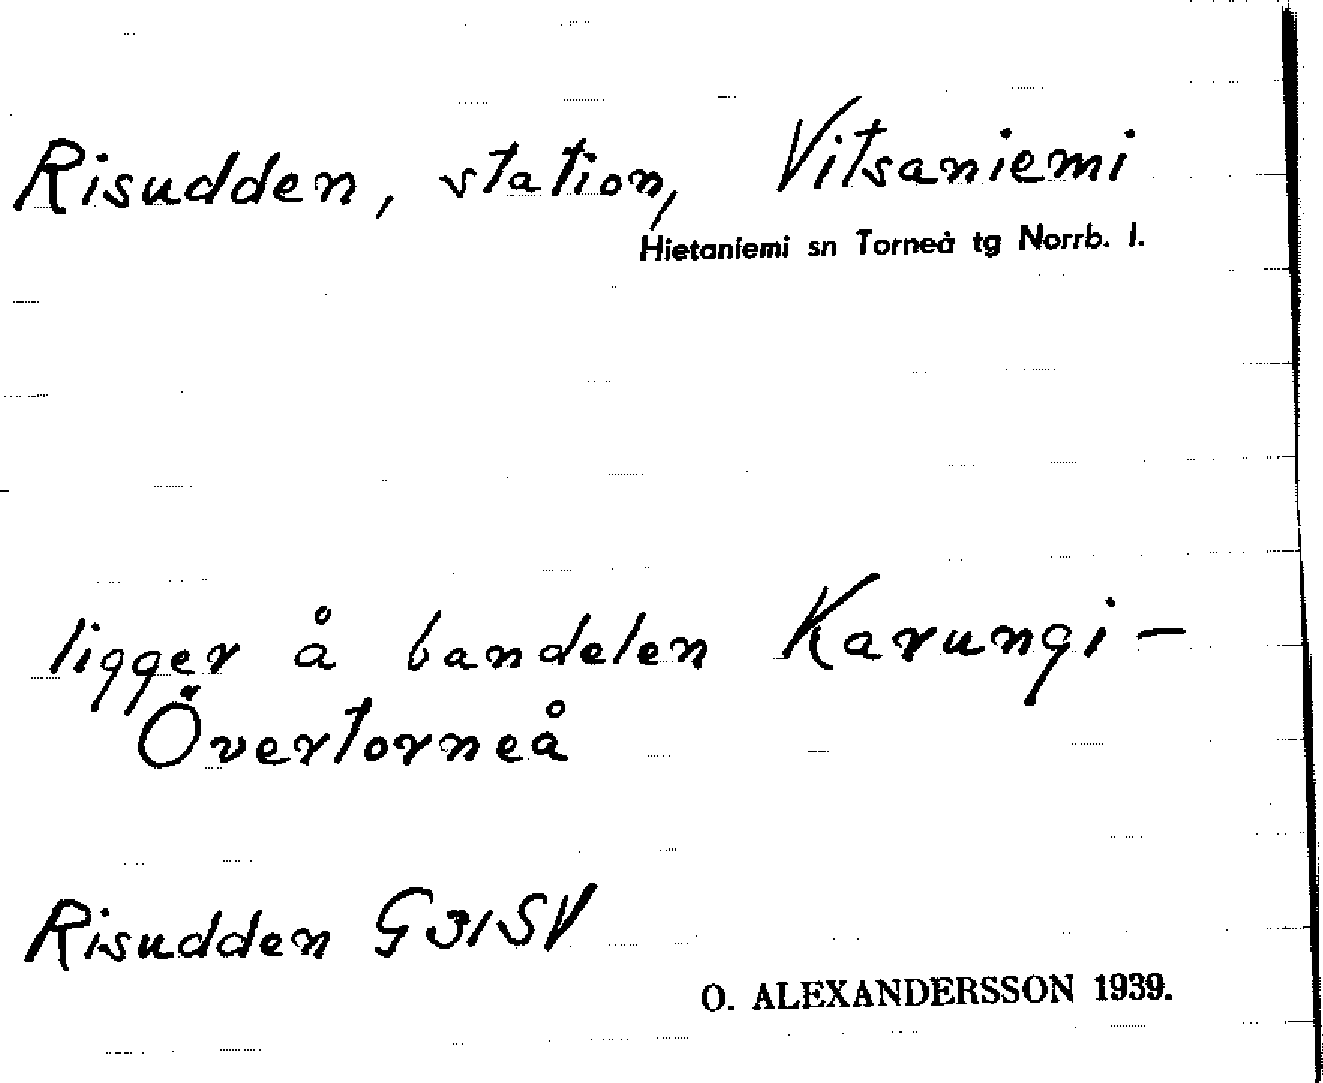 Risudden, station, Vitsaniemi
Hietaniemi sn Torneå tg Norrb. l.
ligger å bandelen Karungi –
Övertorneå
Risudden G31SV
O. ALEXANDERSSON 1939.